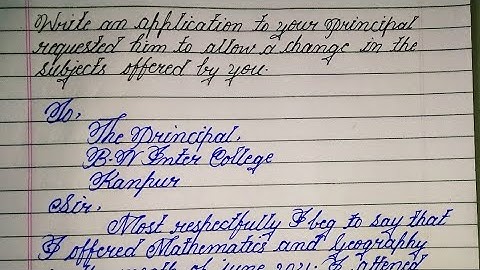 Write an application to your Principal
requested him to allow a change in the
subjects offered by you.
To,
The Principal,
B.N Inter College
Kanpur
Sir,
Most respectfully I beg to say that
I offered Mathematics and Geography
month of june 2021. I attened